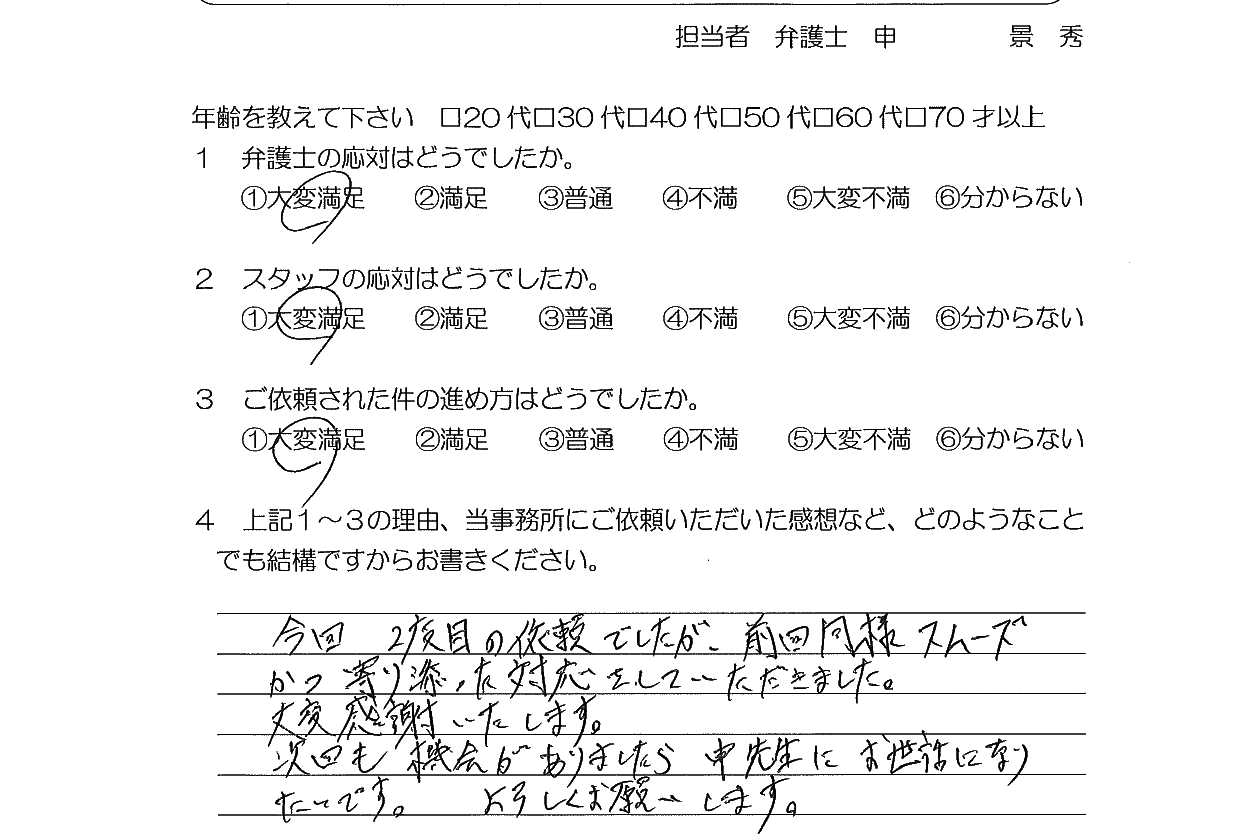 担当者　弁護士　申　　　　景　秀
年齢を教えて下さい　□20代□30代□40代□50代□60代□70才以上
1　弁護士の応対はどうでしたか。
①大変満足　②満足　③普通　④不満　⑤大変不満　⑥分からない
2　スタッフの応対はどうでしたか。
①大変満足　②満足　③普通　④不満　⑤大変不満　⑥分からない
3　ご依頼された件の進め方はどうでしたか。
①大変満足　②満足　③普通　④不満　⑤大変不満　⑥分からない
4　上記1～3の理由、当事務所にご依頼いただいた感想など、どのようなこと
でも結構ですからお書きください。
今回　2度目の依頼でしたが、前回同様スムーズ
かつ寄り添った対応をしていただきました。
大変感謝いたします。
次回も機会がありましたら申先生にお世話になり
たいです。　よろしくお願いします。